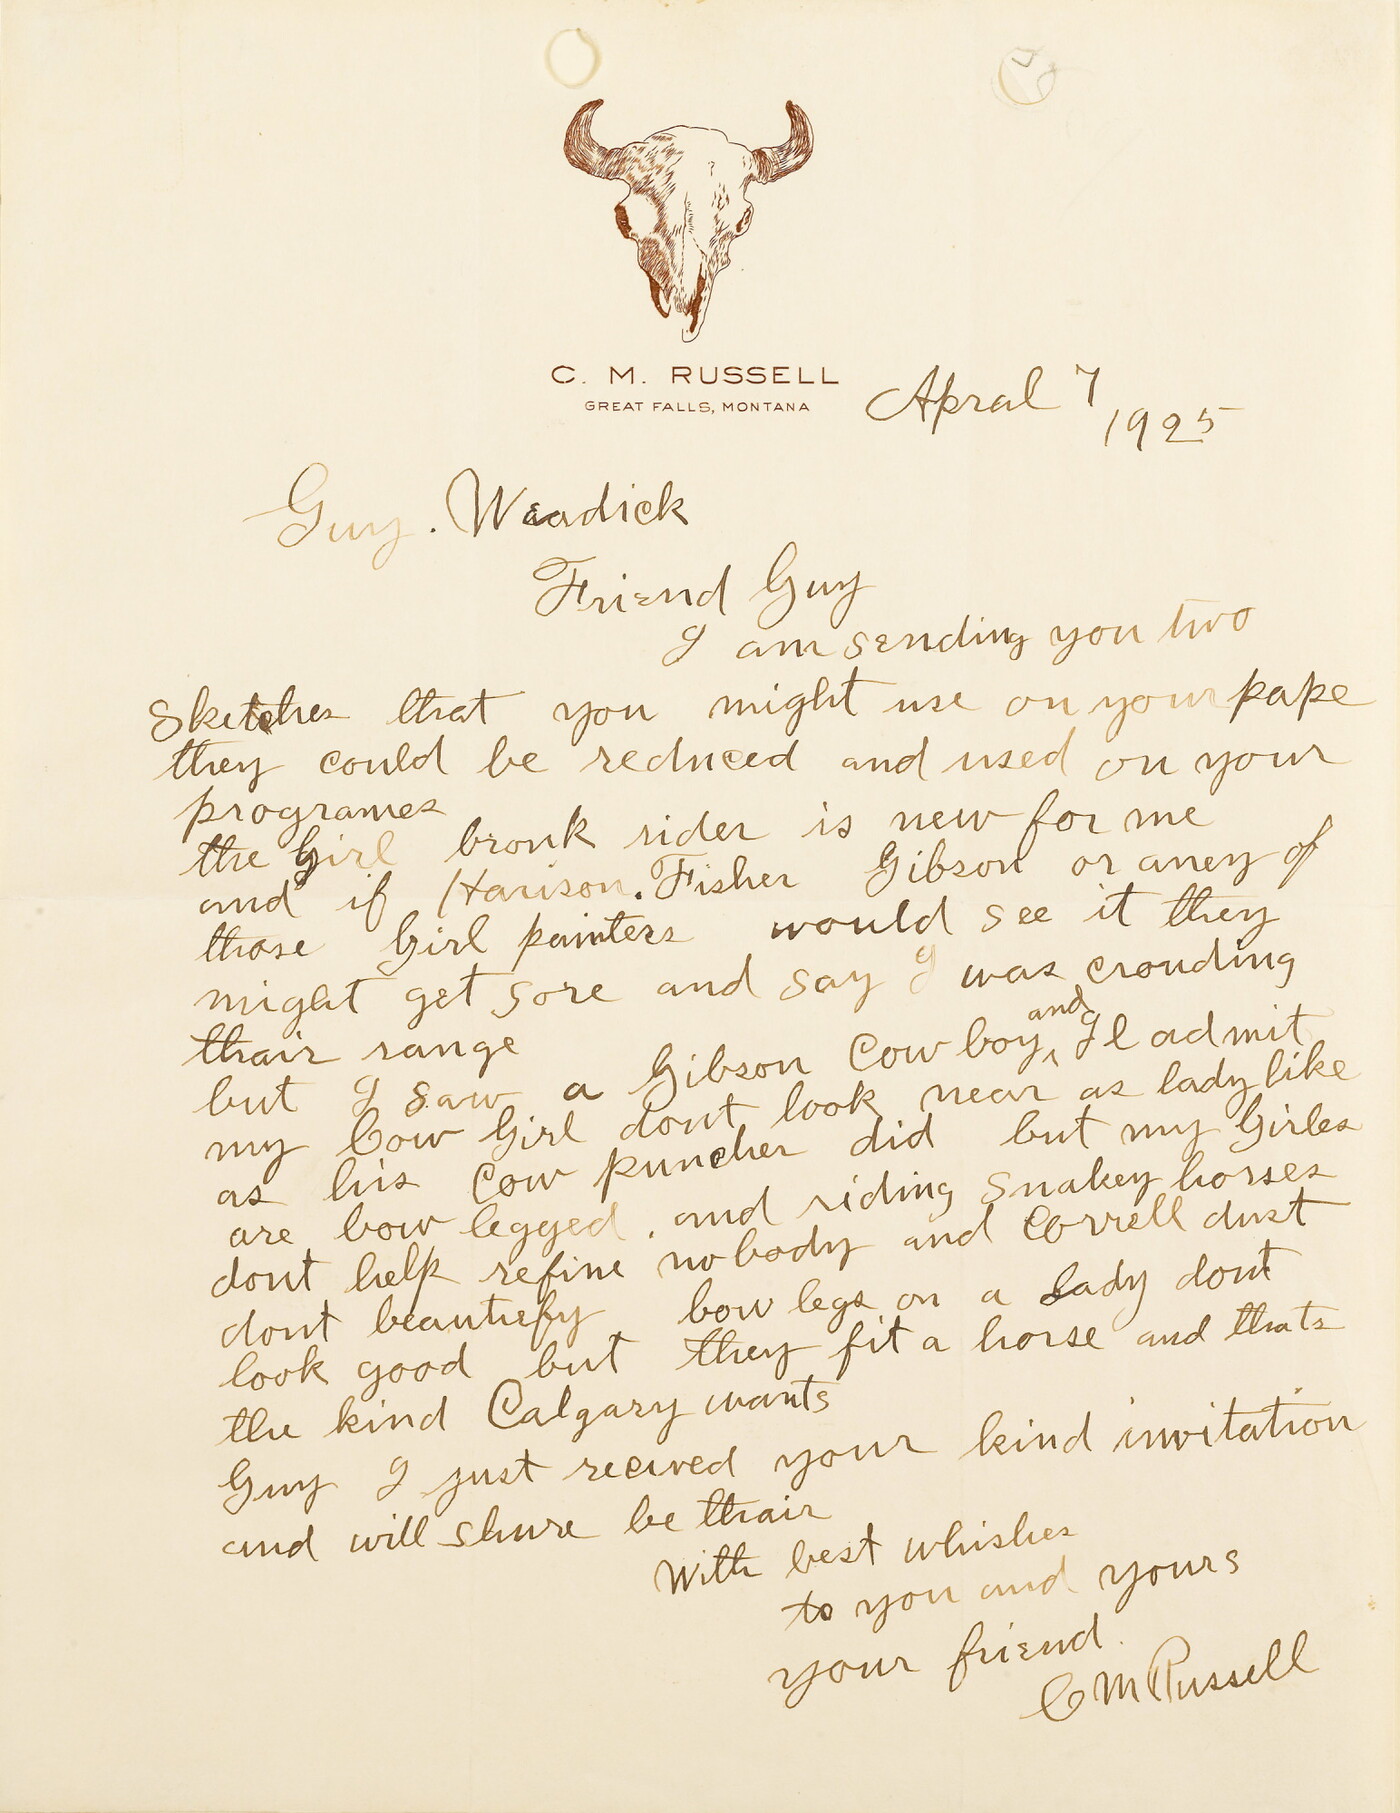 C. M. RUSSELL
GREAT FALLS, MONTANA
Apral 7
1925
Guy. Weadick
Friend Guy
I am sending you two
Sketches that you might use on your pape
they could be reduced and used on your
programes
the Girl bronk rider is new for me
and if Harison. Fisher Gibson or aney of
those Girl painters would see it they
might get sore and say I was crouding
thair range
but I saw a Gibson Cow boy, and Il admit
my Cow Girl dont look near as lady like
as his Cow puncher did but my Girles
are bow legged. and riding snakey horses
dont help refine nobody and Correll dust
dont beautiefy bow legs on a Lady dont
look good but they fit a horse and thats
the kind Calgary wants
Guy I just recived your kind invitation
and will shure be thair
With best whishes
to you and yours
your friend.
C M Russell